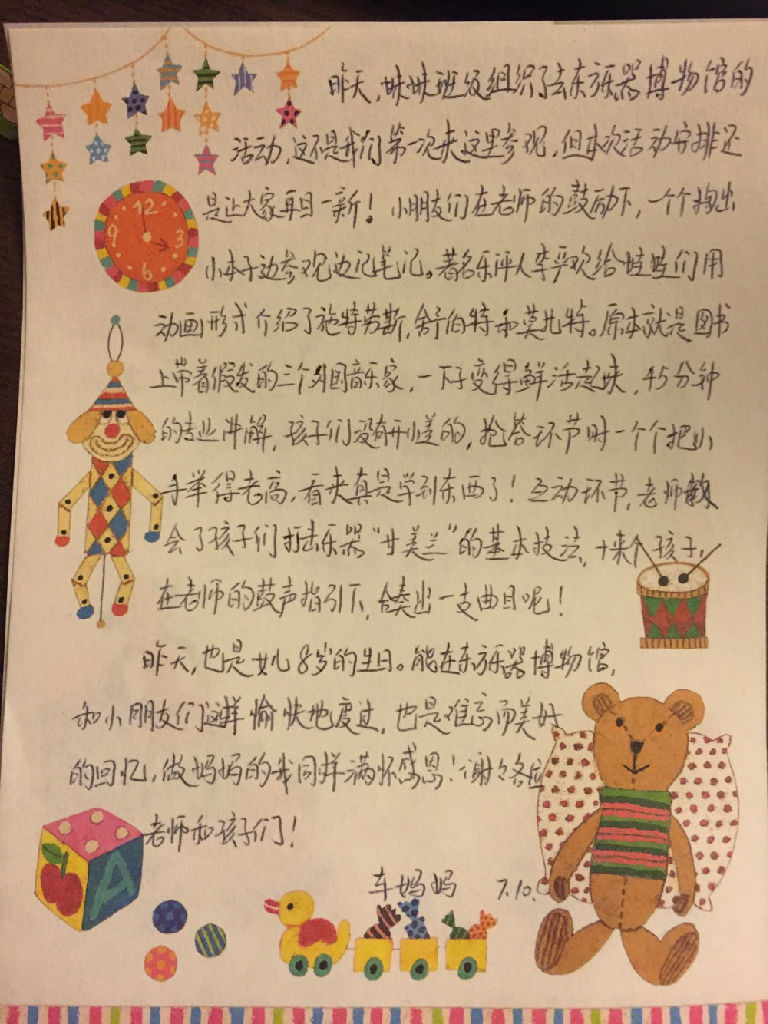 昨天,妹妹班级组织了去东方乐器博物馆的
活动,这不是我们第一次来这里参观,但本次活动安排还
是让大家耳目一新!小朋友们在老师的鼓励下,一个个掏出
小本子边参观边记笔记。著名乐评人李严欢给娃娃们用
动画形式介绍了施特劳斯,舒伯特和莫扎特。原本就是图书
上带着假发的三个外国音乐家,一下子变得鲜活起来,45分钟
的专业讲解,孩子们没有开小差的,抢答环节时一个个把小
手举得老高,看来真是学到东西了!互动环节,老师教
会了孩子们打击乐器“甘美兰”的基本技法,十来个孩子,
在老师的鼓声指引下,合奏出一支曲目呢!
昨天,也是女儿8岁的生日。能在东方乐器博物馆,
和小朋友们这样愉快地度过,也是难忘而美好
的回忆,做妈妈的我同样满怀感恩!谢谢各位
老师和孩子们!
车妈妈 7.10.
12
3
6
9
A